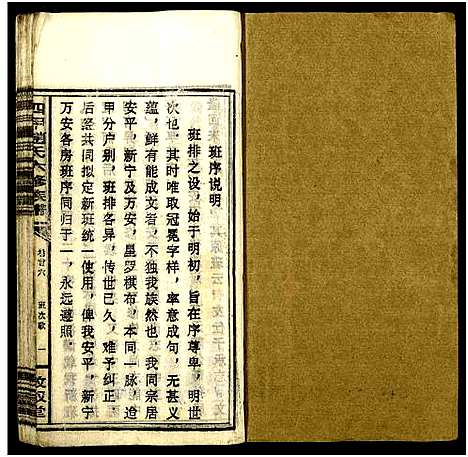 班序说明
班排之设，始于明初，旨在序尊卑，明世
次也。其时唯取冠冕字样，率意成句，无甚义
蕴，鲜有能成文者，不独我族然也。我同宗居
安平，新宁及万安，星罗棋布，本同一脉，迨
甲分户别，班排各异，传世已久，难予纠正，
后经共同拟定新班统一使用，俾我安平，新宁
万安各房班序同归于一，永远遵照。
四甲刘氏六修族谱
卷廿六
班次歌
一
敦叙堂